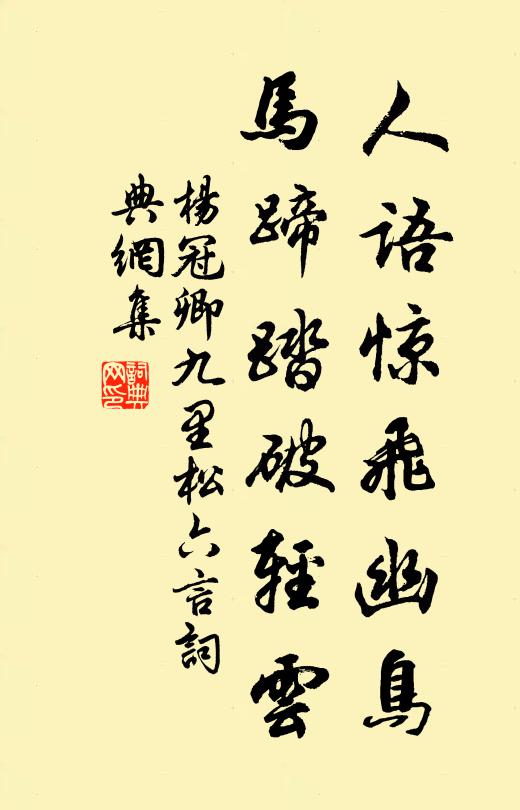 人語惊飛幽鳥
馬蹄踏破輕雲
楊冠卿九里松六言詞
典網集
詞典網印